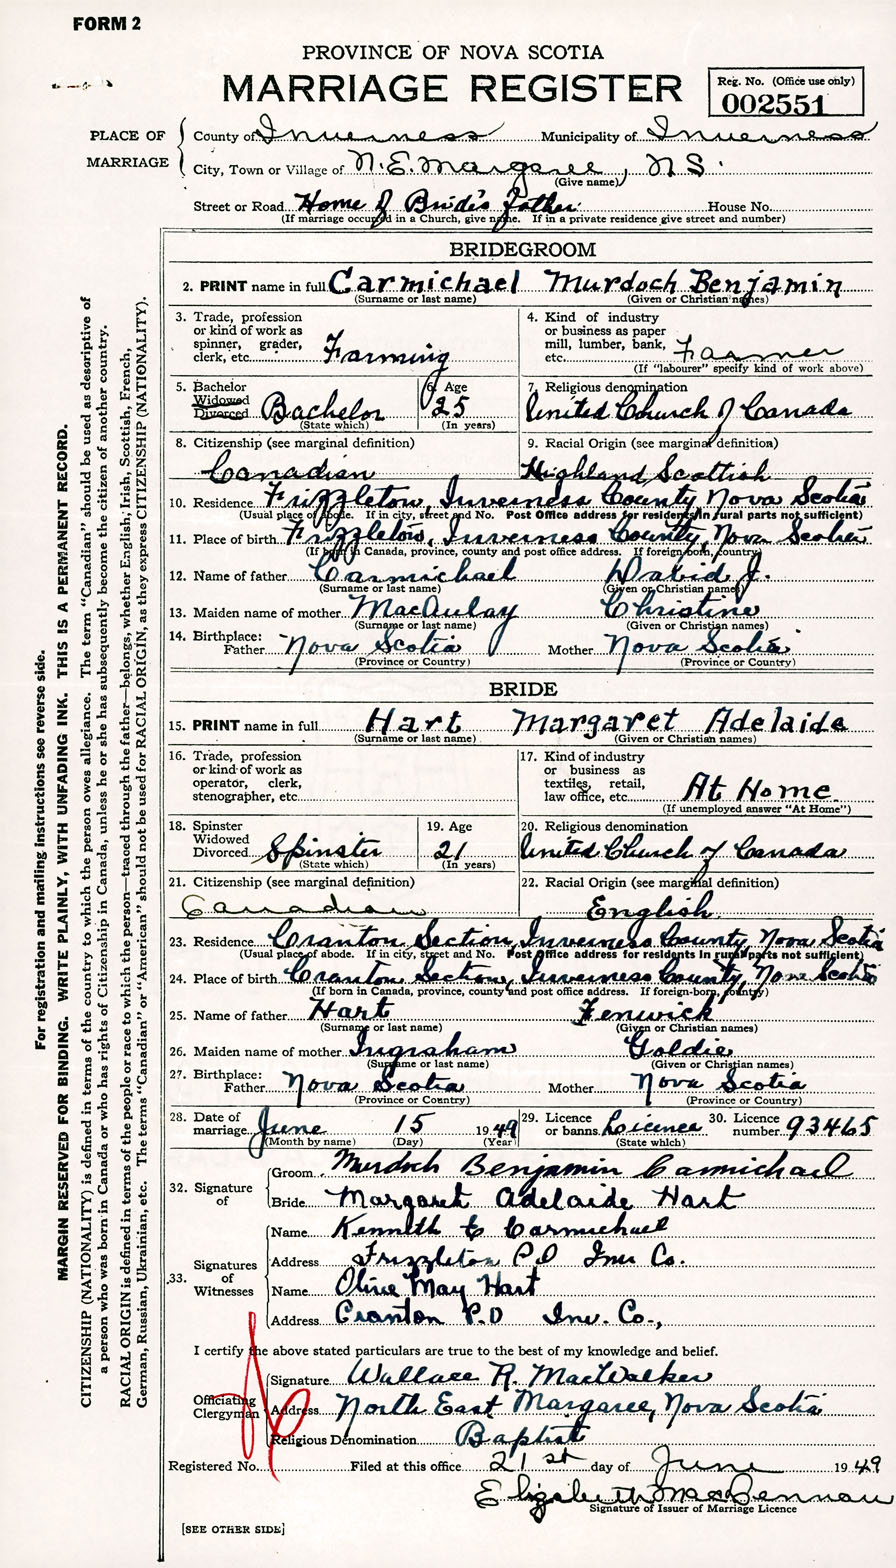 FORM 2
PROVINCE OF NOVA SCOTIA
MARRIAGE REGISTER
Reg. No. (Office use only)
002551
PLACE OF MARRIAGE
County of Inverness Municipality of Inverness
City, Town or Village of N.E. Margaree, N.S.
(Give name)
Street or Road Home of Bride's Father House No.
(If marriage occurred in a Church, give name. If in a private residence give street and number)
BRIDEGROOM
2. PRINT name in full Carmichael Murdoch Benjamin
(Surname or last name) (Given or Christian names)
3. Trade, profession
or kind of work as
spinner, grader,
clerk, etc. Farming
4. Kind of industry
or business as paper
mill, lumber, bank,
etc. Farmer
(If "labourer" specify kind of work above)
5. Bachelor
Widowed
Divorced Bachelor
(State which)
6. Age
25
(In years)
7. Religious denomination
United Church of Canada
8. Citizenship (see marginal definition)
Canadian
9. Racial Origin (see marginal definition)
Highland Scottish
10. Residence Frizzleton, Inverness County, Nova Scotia
(Usual place of abode. If in city, street and No. Post Office address for residents in rural parts not sufficient)
11. Place of birth Frizzleton, Inverness County, Nova Scotia
(If born in Canada, province, county and post office address. If foreign-born, country)
12. Name of father Carmichael David J.
(Surname or last name) (Given or Christian names)
13. Maiden name of mother MacAulay Christine
(Surname or last name) (Given or Christian names)
14. Birthplace:
Father Nova Scotia Mother Nova Scotia
(Province or Country) (Province or Country)
BRIDE
15. PRINT name in full Hart Margaret Adelaide
(Surname or last name) (Given or Christian names)
16. Trade, profession
or kind of work as
operator, clerk,
stenographer, etc.
17. Kind of industry
or business as
textiles, retail,
law office, etc. At Home
(If unemployed answer "At Home")
18. Spinster
Widowed
Divorced Spinster
(State which)
19. Age
21
(In years)
20. Religious denomination
United Church of Canada
21. Citizenship (see marginal definition)
Canadian
22. Racial Origin (see marginal definition)
English
23. Residence Cranton Section, Inverness County, Nova Scotia
(Usual place of abode. If in city, street and No. Post Office address for residents in rural parts not sufficient)
24. Place of birth Cranton Section, Inverness County, Nova Scotia
(If born in Canada, province, county and post office address. If foreign-born, country)
25. Name of father Hart Fenwick
(Surname or last name) (Given or Christian names)
26. Maiden name of mother Ingraham Goldie
(Surname or last name) (Given or Christian names)
27. Birthplace:
Father Nova Scotia Mother Nova Scotia
(Province or Country) (Province or Country)
28. Date of
marriage June 15 1949
(Month by name) (Day) (Year)
29. Licence
or banns Licence
(State which)
30. Licence
number 93465
32. Signature of
Groom Murdoch Benjamin Carmichael
Bride Margaret Adelaide Hart
33. Signatures of Witnesses
Name Kenneth C Carmichael
Address Frizzleton P.O Inv Co.
Name Olive May Hart
Address Cranton P.O Inv. Co.,
I certify the above stated particulars are true to the best of my knowledge and belief.
Officiating Clergyman
Signature Wallace R. MacWalker
Address North East Margaree, Nova Scotia
Religious Denomination Baptist
Registered No. Filed at this office 21st day of June 1949
Elizabeth MacLennan
Signature of Issuer of Marriage Licence
[SEE OTHER SIDE]
For registration and mailing instructions see reverse side.
MARGIN RESERVED FOR BINDING. WRITE PLAINLY, WITH UNFADING INK. THIS IS A PERMANENT RECORD.
CITIZENSHIP (NATIONALITY) is defined in terms of the country to which the person owes allegiance. The term "Canadian" should be used as descriptive of
a person who was born in Canada or who has rights of Citizenship in Canada, unless he or she has subsequently become the citizen of another country.
RACIAL ORIGIN is defined in terms of the people or race to which the person—traced through the father—belongs, whether English, Irish, Scottish, French,
German, Russian, Ukrainian, etc. The terms "Canadian" or "American" should not be used for RACIAL ORIGIN, as they express CITIZENSHIP (NATIONALITY).